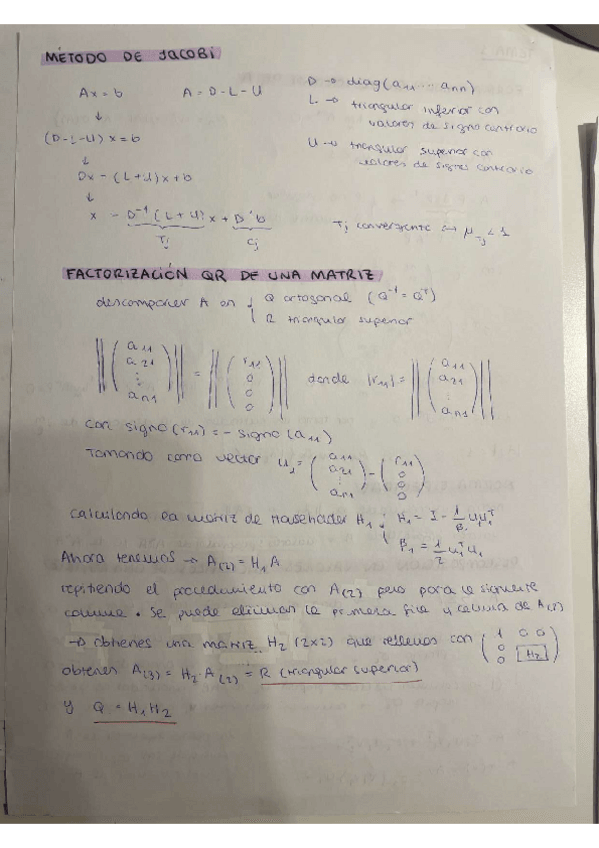 MÉTODO DE JACOBI
Ax = b    A = D - L - U    D → diag(a₁₁ ... aₙₙ)
L → triangular inferior con
valores de signo contrario
(D-L-U) x = b    U → triangular superior con
valores de signos contrario
Dx = (L+U)x + b
x = D⁻¹(L+U)x + D⁻¹b
Tj    Cj    Tj convergente ↔ μ_Tj < 1
FACTORIZACIÓN QR DE UNA MATRIZ
descomponer A en { Q ortogonal (Q⁻¹ = Qᵀ)
R triangular superior
‖(a₁₁ a₂₁ ⋮ aₙ₁)‖ = ‖(r₁₁ 0 0 0)‖ donde |r₁₁| = ‖(a₁₁ a₂₁ ⋮ aₙ₁)‖
con signo (r₁₁) = - signo (a₁₁)
Tomando como vector u₁ = (a₁₁ a₂₁ ⋮ aₙ₁) - (r₁₁ 0 0 0)
calculando la matriz de Householder H₁ : { H₁ = I - 1/β₁ u₁u₁ᵀ
β₁ = 1/2 u₁ᵀu₁
Ahora tenemos → A(2) = H₁A
repitiendo el procedimiento con A(2) pero para la siguiente
columna. Se puede eliminar la primera fila y columna de A(2)
→ obtenes una matriz H₂ (2x2) que rellenos con (1 0 0 0 0 H₂)
obtenen A(3) = H₂·A(2) = R (triangular superior)
y Q = H₁H₂